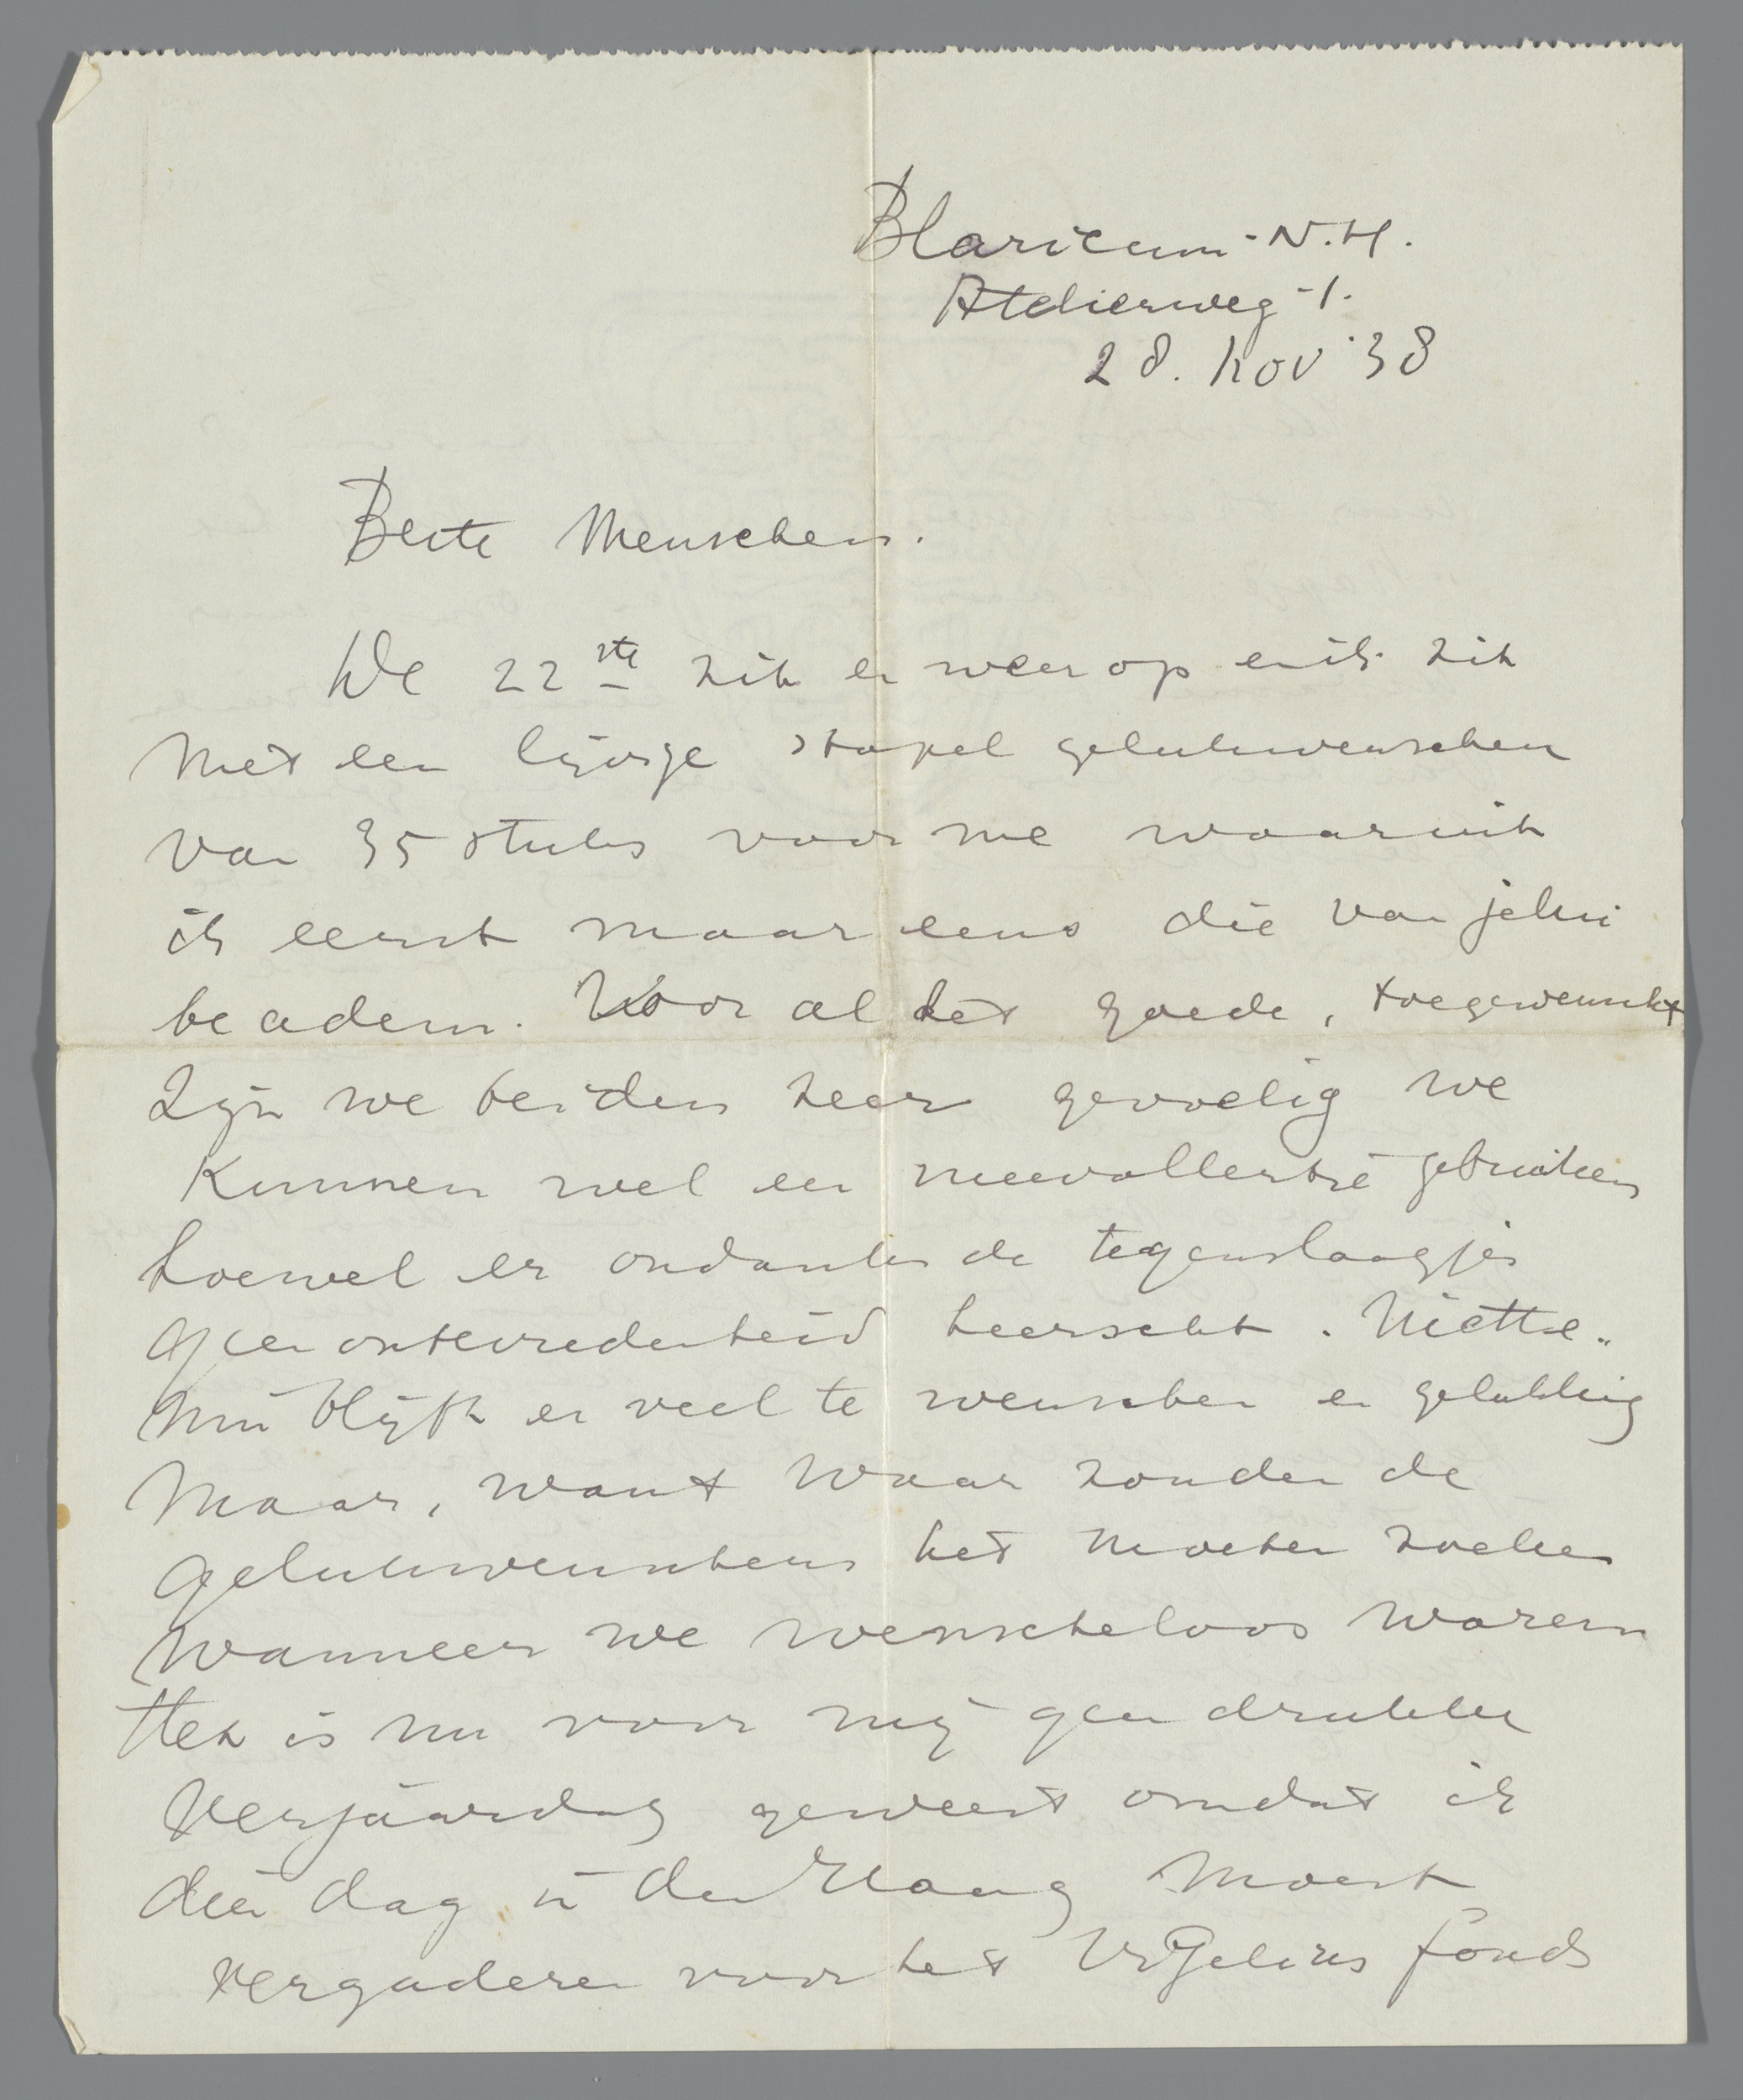 Blaricum - N.H.
Atelierweg - 1.
28. nov '38
Beste Menschen.
De 22ste zit er weer op en ik zit
met een lijvige stapel gelukwenschen
van 35 stuks voor me waaruit
ik eerst maar eens die van jelui
beadem. Voor al het goede, toegewenscht
zijn we beiden zeer gevoelig we
kunnen wel een meevallertje gebruiken
hoewel er ondanks de tegenslaagjes
geen ontevredenheid heerscht. Niette"
min blijft er veel te wenschen en gelukkig
maar, want waar zouden de
gelukwenschen het moeten zoeken
wanneer we wenscheloos waren
Het is nu voor mij geen drukke
verjaardag geweest omdat ik
dien dag in den Haag moest
vergaderen voor het fonds